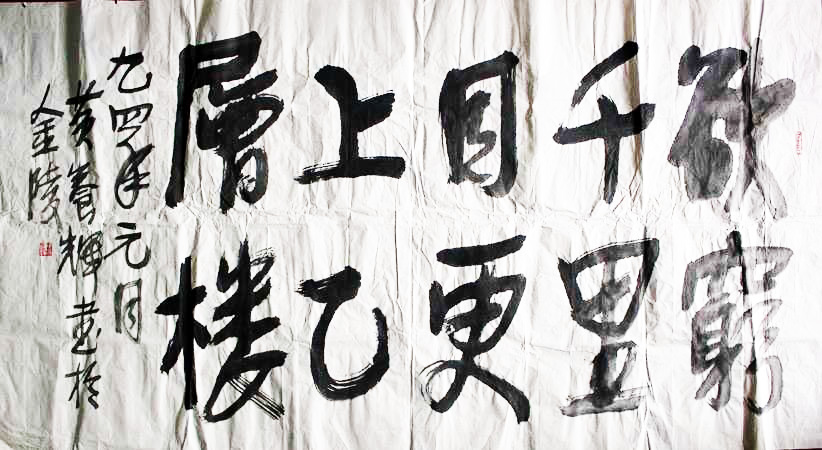 欲窮
千里
目更
上乙
層楼
九四年元月
黄養輝書於
金陵